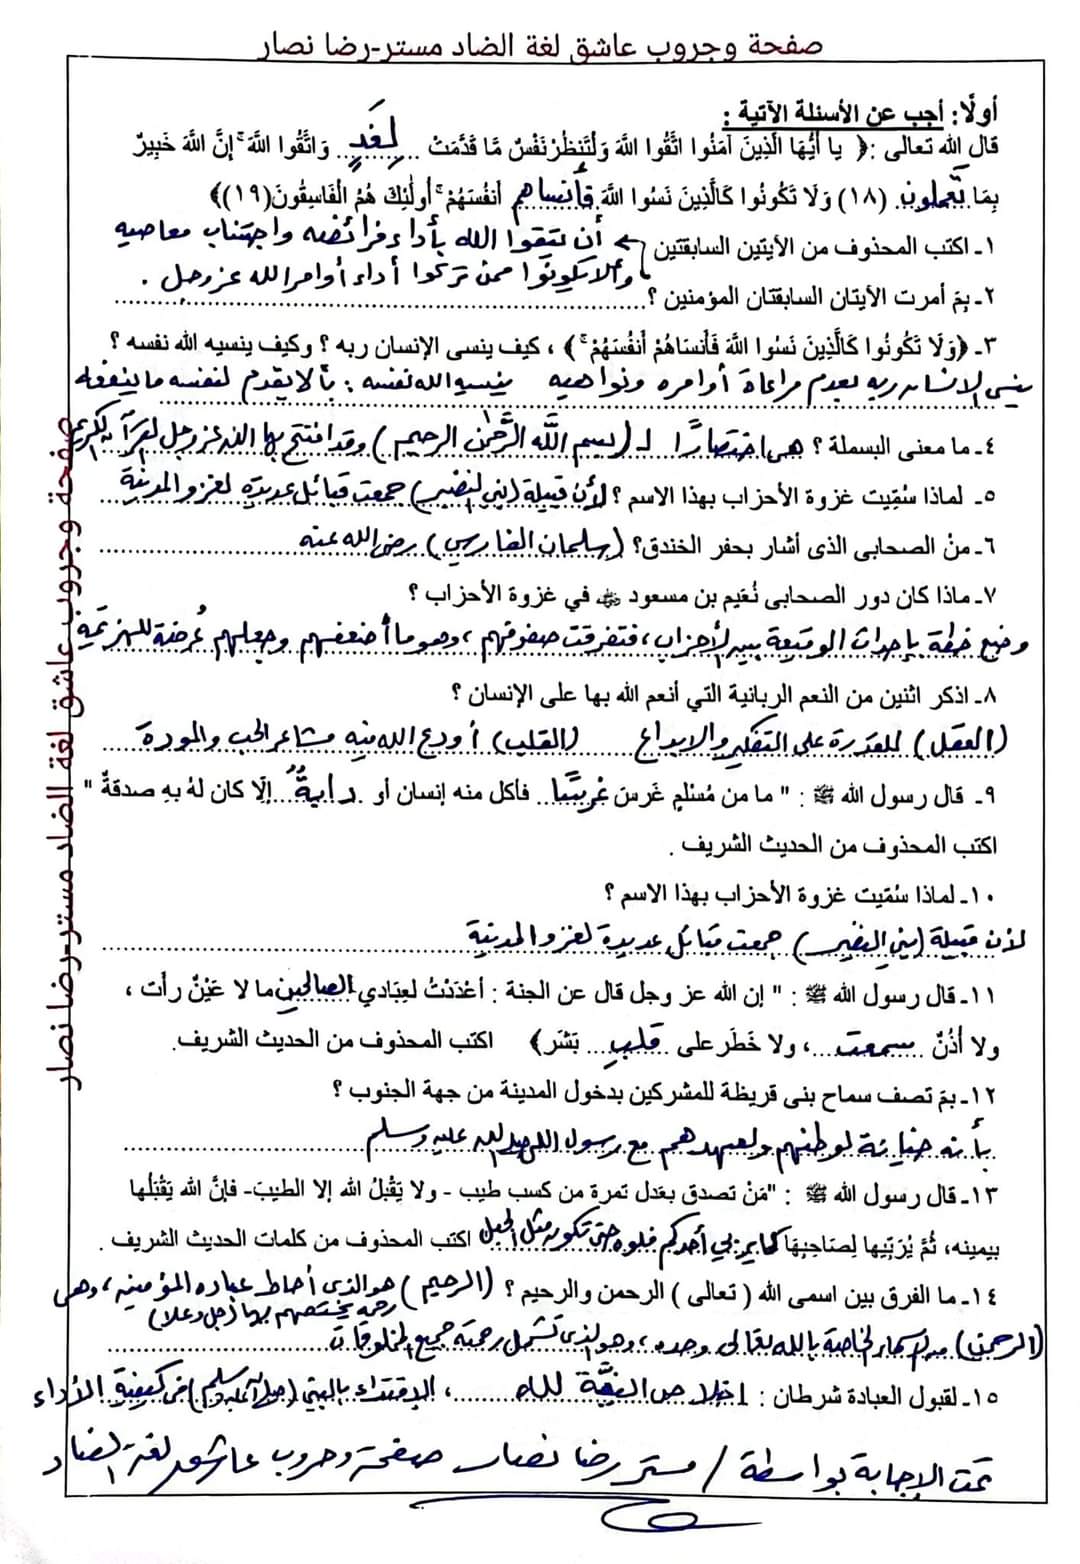 صفحة وجروب عاشق لغة الضاد مستر-رضا نصار
أولًا: أجب عن الأسئلة الآتية :
قال الله تعالى :﴿ يا أَيُّهَا الَّذِينَ آمَنُوا اتَّقُوا اللَّهَ وَلْتَنظُرْ نَفْسٌ مَّا قَدَّمَتْ ..لِغَدٍ.. وَاتَّقُوا اللَّهَ ۚ إِنَّ اللَّهَ خَبِيرٌ
بِمَا تَعْملون. (١٨) وَلَا تَكُونُوا كَالَّذِينَ نَسُوا اللَّهَ فأنساهم أَنفُسَهُمْ ۚ أُولَٰئِكَ هُمُ الْفَاسِقُونَ(١٩)﴾
١ـ اكتب المحذوف من الآيتين السابقتين
أن تتقوا الله بأداء فرائضه واجتناب معاصيه
وألا يكونوا ممن تركوا أداء أوامر الله عز وجل .
٢ـ بِمَ أمرت الآيتان السابقتان المؤمنين ؟
٣ـ ﴿وَلَا تَكُونُوا كَالَّذِينَ نَسُوا اللَّهَ فَأَنسَاهُمْ أَنفُسَهُمْ ۚ﴾ ، كيف ينسى الإنسان ربه ؟ وكيف ينسيه الله نفسه ؟
ينسى الإنسان ربه بعدم مراعاة أوامره ونواهيه ينسيه الله نفسه : بألا يقدم لنفسه ما ينفعه
٤ـ ما معنى البسملة ؟ هى اختصارًا لـ (بسم الله الرَّحمٰن الرحيم) وقد افتتح بها الله عز وجل القرآن الكريم
٥ـ لماذا سُمِّيت غزوة الأحزاب بهذا الاسم ؟ لأن قبيلة (بني النضير) جمعت قبائل عديدة لغزو المدينة
٦ـ منْ الصحابى الذى أشار بحفر الخندق؟ (سلمان الفارسي) رضى الله عنه
٧ـ ماذا كان دور الصحابى نُعَيم بن مسعود في غزوة الأحزاب ؟
وضع خطة بإحداث الوقيعة بين الأحزاب ، فتفرقت صفوفهم ، وهو ما أضعفهم وجعلهم عُرضة للهزيمة
٨ـ اذكر اثنين من النعم الربانية التي أنعم الله بها على الإنسان ؟
(العقل) للقدرة على التفكير والإبداع (القلب) أودع الله فيه مشاعر الحب والمودة
٩ـ قال رسول الله ﷺ : " ما من مُسْلمٍ غَرسَ غرسًا.. فأكل منه إنسان أو دابةٌ.. إلّا كان لهُ بهِ صدقةٌ "
اكتب المحذوف من الحديث الشريف .
١٠ـ لماذا سُمِّيت غزوة الأحزاب بهذا الاسم ؟
لأن قبيلة (بني النضير) جمعت قبائل عديدة لغزو المدينة
١١ـ قال رسول الله ﷺ : " إن الله عز وجل قال عن الجنة : أعْدَدْتُ لعِبَادي الصالحين ما لا عَيْنٌ رأت ،
ولا أُذُنٌ سمعت...، ولا خَطَر على قلب.. بَشَر﴾ اكتب المحذوف من الحديث الشريف.
١٢ـ بمَ تصف سماح بنى قريظة للمشركين بدخول المدينة من جهة الجنوب ؟
بأنه خيانة لوطنهم ولعهدهم مع رسول الله صلى الله عليه وسلم
١٣ـ قال رسول الله ﷺ : "مَنْ تصدق بعَدل تمرة من كسب طيب - ولا يَقْبلُ الله إلا الطيبَ- فإنَّ الله يَقْبَلُها
بيمينه، ثُمَّ يُرَبِّيها لِصَاحِبِهَا كما يربي أحدكم فلوه حتى تكون مثل الجبل اكتب المحذوف من كلمات الحديث الشريف .
١٤ـ ما الفرق بين اسمى الله ( تعالى ) الرحمن والرحيم ؟ (الرحيم) هو الذى أحاط عباده المؤمنين ، وهى
رحمة يختصهم بها (جل وعلا)
(الرحمن) من الأسماء الخاصة بالله تعالى وحده ، وهو الذى تشمل رحمته جميع المخلوقات
١٥ـ لقبول العبادة شرطان : إخلاص النيَّة لله ...... ، الاقتداء بالنبي (صلى الله عليه وسلم) فى كيفية الأداء
تمت الإجابة بواسطة / مستر رضا نصار صفحة وجروب عاشق لغة الضاد
صفحة وجروب عاشق لغة الضاد مستر-رضا نصار